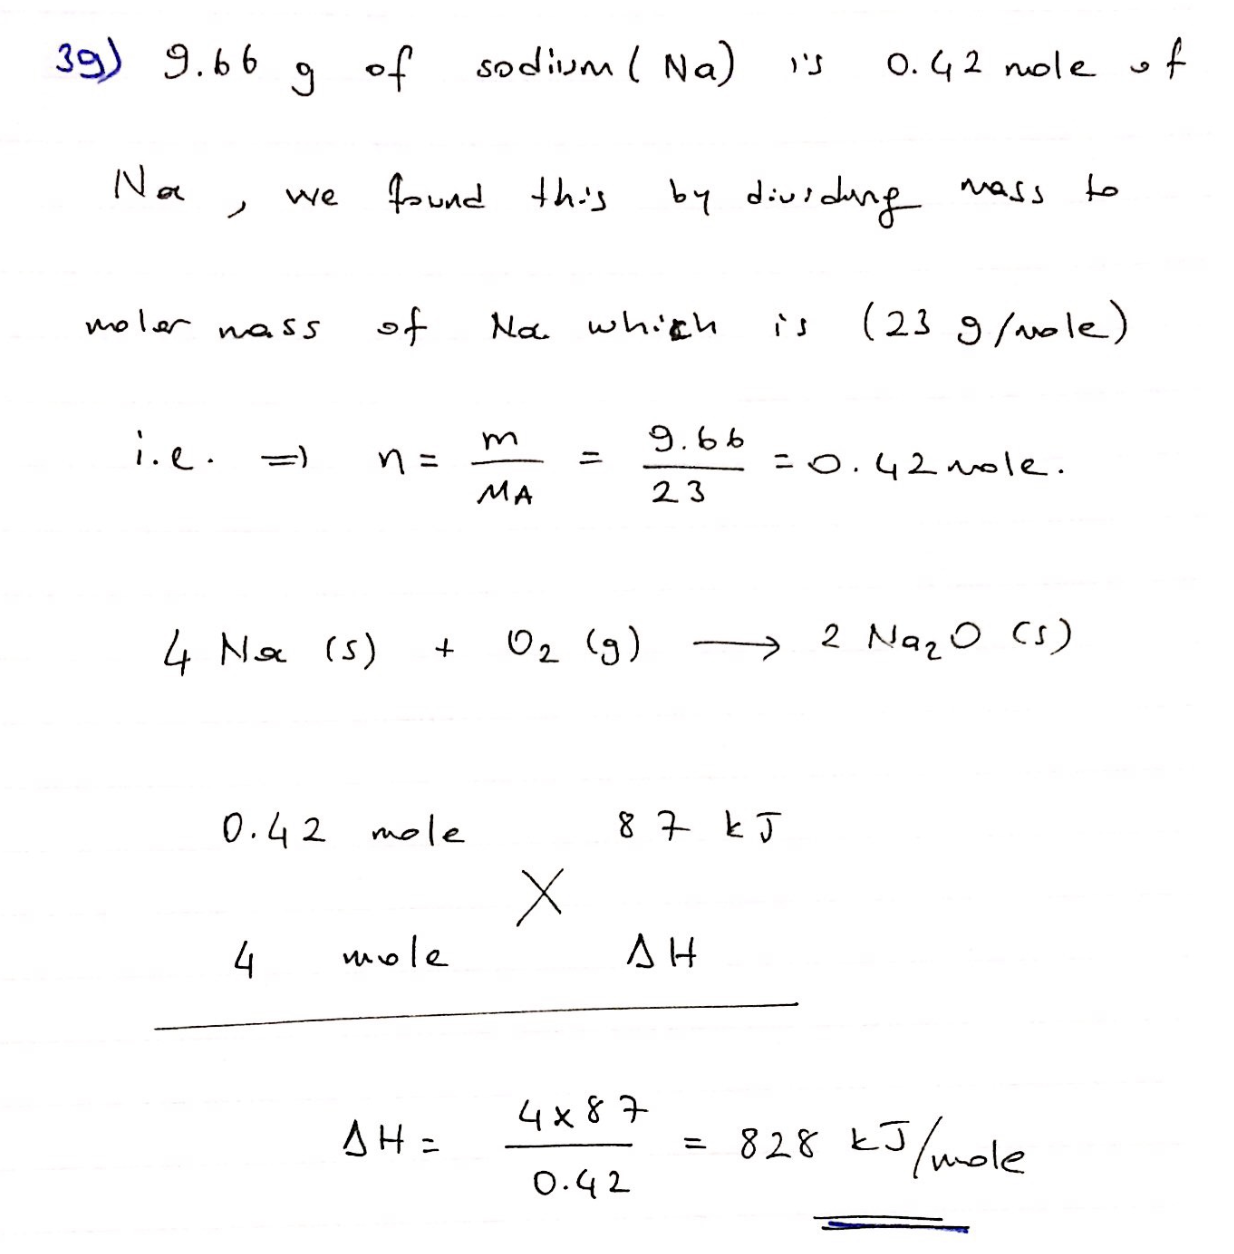 39) 9.66 g of sodium (Na) is 0.42 mole of
Na , we found this by dividing mass to
molar mass of Na which is (23 g/mole)
i.e. ⇒ n = m/MA = 9.66/23 = 0.42 mole.
4 Na (s) + O2 (g) ⟶ 2 Na2O (s)
0.42 mole 87 kJ
X
4 mole ΔH
ΔH = 4x87/0.42 = 828 kJ/mole